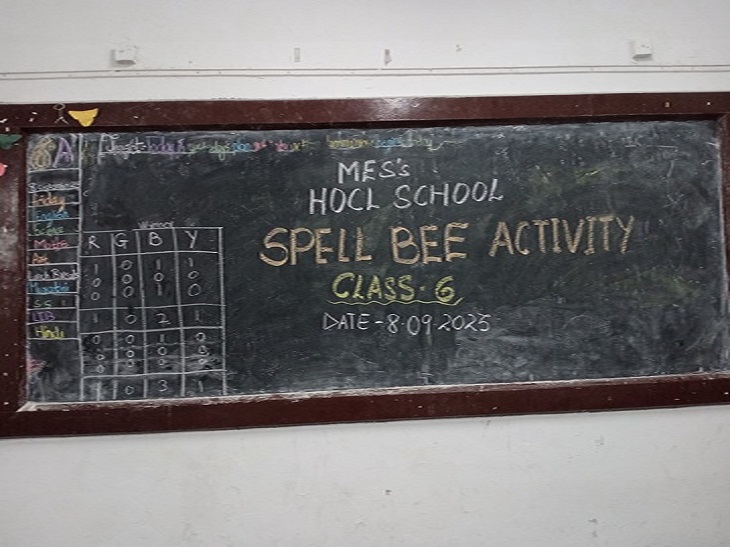 8A
MES's
HOCL SCHOOL
SPELL BEE ACTIVITY
CLASS - 6
DATE - 8.09.2025
Friday
English
Science
Maths
Art
Lunch Break
Marathi
S.S
LIB
Hindi
Winner
R G B Y
1 0 1 1
0 0 0 0
0 0 1 0
1 0 2 1
0 0 1 0
0 0 0 0
1 0 3 1